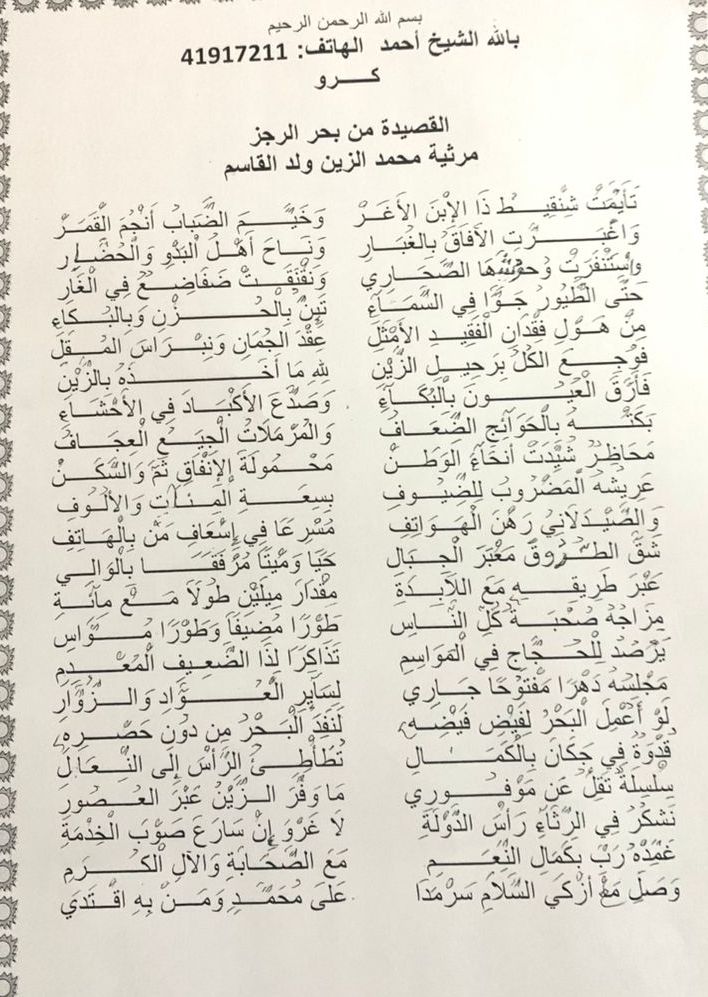 بسم الله الرحمن الرحيم
بالله الشيخ أحمد الهاتف: 41917211
كـــرو
القصيدة من بحر الرجز
مرثية محمد الزين ولد القاسم
تَأَيَّمَتْ شِنْقِيـــطُ ذَا الإِبْنَ الأَغَــرْ وَخَيَّـــمَ الضَّبَابُ أَنْجُمَ الْقَمَــرْ
وَاغْبَـــرَّتِ الآفَاقُ بِالْغُبَـــارِ وَنَـاحَ أَهْـلُ الْبَدْوِ وَالْحُضَّـارِ
وَاسْتَنْفَرَتْ وُحُوشُهَا الصَّحَارِي وَنَقْنَقَـــتْ ضَفَادِعٌ فِي الْغَارِ
حَتَّى الطُّيُورُ جَـوًّا فِي السَّمَـــآءِ تَئِنُّ بِالْحُـــزْنِ وَبِالْبُـكَاءِ
مِنْ هَـوْلِ فِقْدَانِ الْفَقِيـدِ الأَمْثَلِ عِقْدَ الْجُمَانِ وَنِبْـرَاسَ الْمُـقَلِ
فَوُجِـــعَ الْكُلُّ بِرَحِيـلِ الزَّيْنِ لِلهِ مَا أَخَـــذَهُ بِالزَّيْنِ
فَأَرَّقَ الْعُيُـــونَ بِالْبُكَـــآءِ وَصَدَّعَ الأَكْبَـادَ فِي الأَحْشَـاءِ
بَكَتْـــهُ بِالْحَوَائِجِ الضِّعَـــافُ وَالْمُرْمَلَاتُ الْجِيَـعُ الْعِجَـافُ
مَحَاظِرٌ شُيِّدَتْ أَنْحَآءَ الْوَطَـنْ مَحْـمُولَةُ الإِنْفَاقِ ثَمَّ وَالسَّكَـنْ
عَرِيشُهُ الْمَضْرُوبُ لِلضُّيُـوفِ بِسِعَـــةِ الْمِئَـاتِ وَالأُلُـوفِ
وَالصَّيْدَلَانِيُّ رَهْنَ الْهَـوَاتِفِ مُسْرِعًا فِي إِسْعَافِ مَنْ بِالْهَاتِفِ
شَقَّ الطَّـرِيقَ مَعْبَرَ الْجِـبَالِ حَيًّا وَمَيْتًا مُرْفَقًـــا بِالْوَالِي
عَبْرَ طَرِيقِـــهِ مَعَ اللَّابِدَةِ مِقْدَارَ مِيلَيْنِ طُولًا مَـعْ مِائَـةِ
مِزَاجُهُ صُحْبَـــةُ كُلِّ النَّـاسِ طَوْرًا مُضِيفًا وَطَوْرًا مُـــوَاسِ
يَرْصُدُ لِلْحُـــجَّاجِ فِي الْمَوَاسِمِ تَذَاكِرًا لِذَا الضَّعِيفِ الْمُعْـدِمِ
مَجْلِسُهُ دَهْرًا مَفْتُوحًا جَـارِي لِسَايِرِ الْعُـــوَّادِ وَالـــزُّوَّارِ
لَوْ أُعْمِلَ الْبَحْرُ لِفَيْضِ فَيْضِـهِ لَنَفِدَ الْبَـحْرُ مِن دُونِ حَصْـرِهِ
قُدْوَةٌ فِي جَكَانَ بِالْكَمَـــالِ تُطَأْطِـئُ الرَّأْسَ إِلَى النِّـعَالَ
سِلْسِلَةٌ تَقِلُّ عَن مَوْفُـــورِي مَا وَفَّرَ الـزَّيْنُ عَبْرَ الْعُـصُورِ
نَشْكُرُ فِي الرِّثَآءِ رَأْسَ الدَّوْلَةِ لَا غَرْوَ إِنْ سَارَعَ صَوْبَ الْخِدْمَةِ
غَمَّدَهُ رَبِّ بِكَمَالِ النِّعَـــمِ مَعَ الصَّحَابَةِ وَالآلِ الْكَـــرَمِ
وَصَلِّ مَعْ أَزْكَى السَّلَامِ سَرْمَدَا عَلَى مُحَمَّـــدٍ وَمَـنْ بِهِ اقْـتَدَى